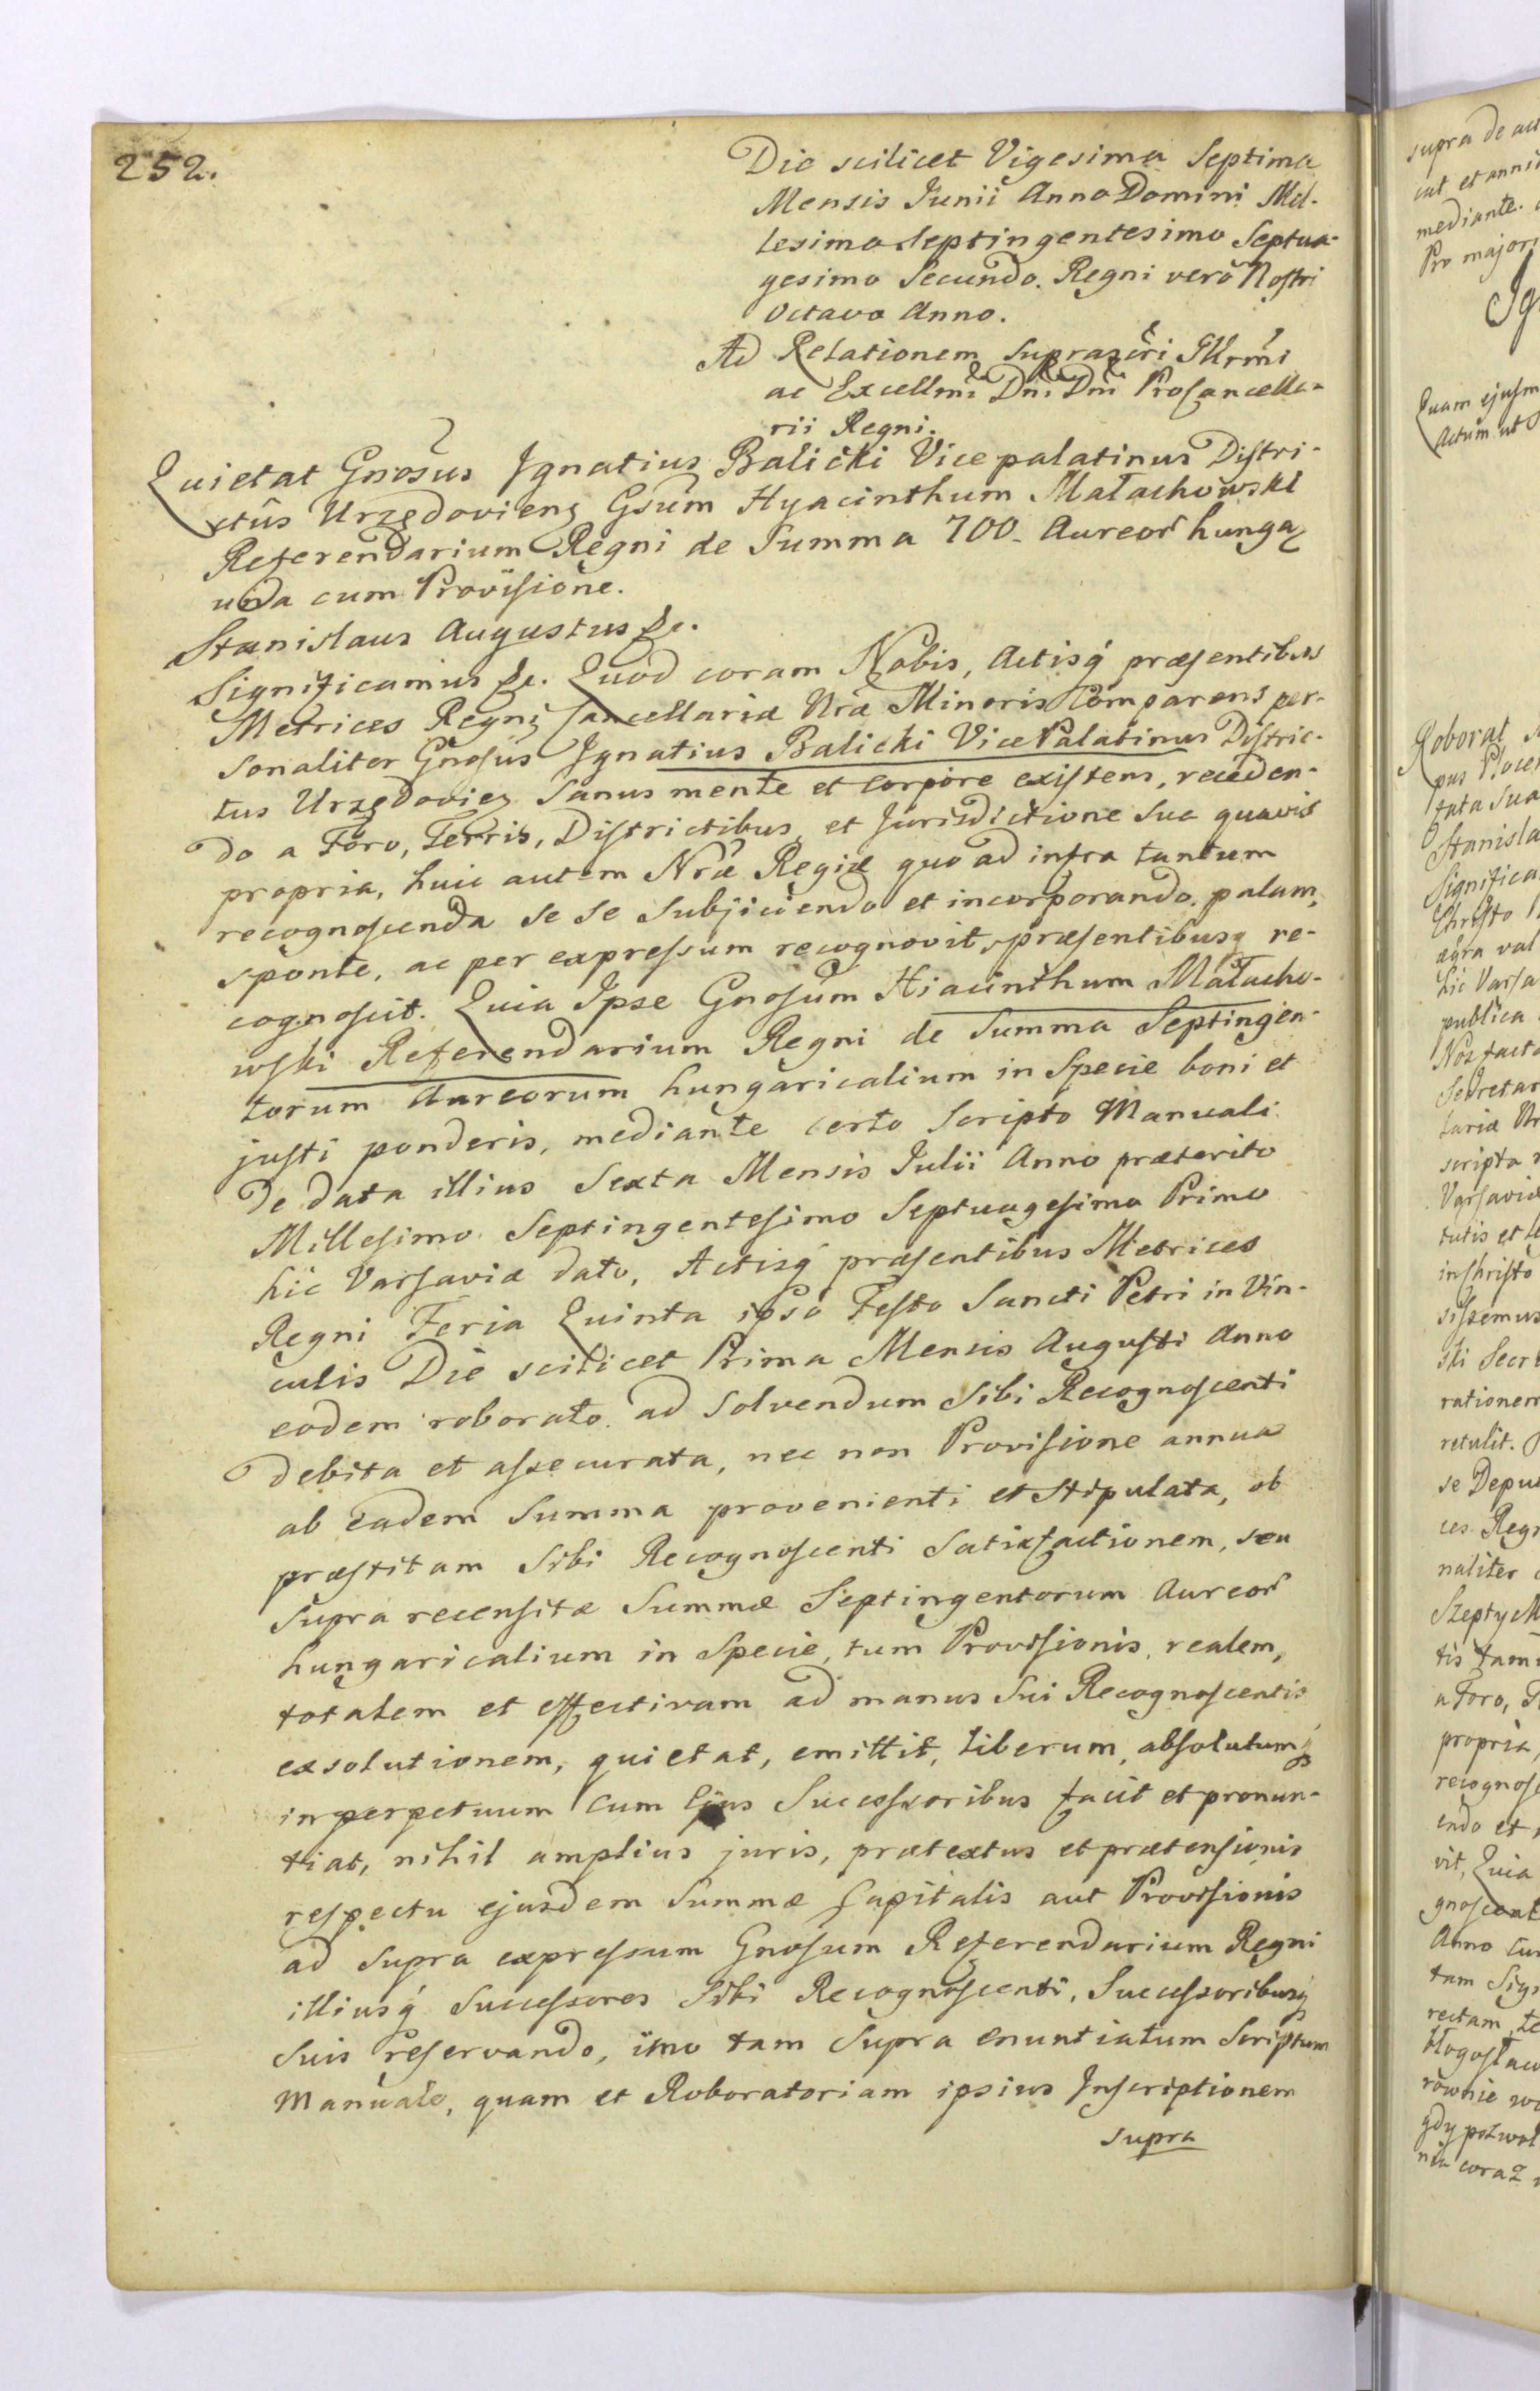 252.
Die scilicet Vigesima Septima
Mensis Junii Anno Domini Mil-
lesimo Septingentesimo Septua-
gesimo Secundo. Regni verò Nostri
Octavo Anno.
Ad Relationem Suprascri Illrmi
ac Excellmi Dni Dni Procancella-
rii Regni.
Quietat Gnosus Ignatius Balicki Vicepalatinus Distri-
ctûs Urzędoviens Gsum Hyacinthum Małachowski
Referendarium Regni de Summa 700. Aureor hunga
una cum Provisione.
Stanislaus Augustus &c.
Significamus &c. Quod coram Nobis, Actisq præsentibus
Metrices Regni Cancellariæ Nræ Minoris Comparens per-
sonaliter Gnosus Ignatius Balicki Vice Palatinus Distric-
tus Urzędovien Sanus mente et corpore existens, receden-
do a Foro, Terris, Districtibus, et Jurisdictione Sua quavis
propria, huic autem Nræ Regiæ quo ad infra tantum
recognoscenda se se subjiciendo et incorporando, palam,
sponte, ac per expressum recognovit, præsentibusq re-
cognoscit. Quia Ipse Gnosum Hiacinthum Małacho-
wski Referendarium Regni de Summa Septingen-
torum Aureorum hungaricalium in Specie boni et
justi ponderis, mediante certo Scripto Manuali
De data illius Sexta Mensis Julii Anno præterito
Millesimo Septingentesimo Septuagesimo Primo
hic Varsaviæ dato, Actisq præsentibus Metrices
Regni Feria Quinta ipso Festo Sancti Petri in Vin-
culis Die scilicet Prima Mensis Augusti Anno
eodem roborato ad Solvendum Sibi Recognoscenti
debita et assecurata, nec non Provisione annua
ab eadem Summa provenienti et Stipulata, ob
præstitam Sibi Recognoscenti Satisfactionem, seu
Supra recensitæ Summæ Septingentorum Aureor
hungaricalium in Specie, tum Provisionis, realem,
totalem et effectivam ad manus Sui Recognoscentis
exsolutionem, quietat, emittit, liberum, absolutumq
in perpetuum cum Ejus Successoribus facit et pronun-
tiat, nihil amplius juris, prætextus et prætensionis
respectu ejusdem Summæ Capitalis aut Provisionis
ad Supra expressum Gnosum Referendarium Regni
illiusq Successores Sibi Recognoscenti, Successoribusq
Suis reservando, imo tam Supra enuntiatum Scriptum
Manuale, quam et Roboratoriam ipsius Inscriptionem
supra